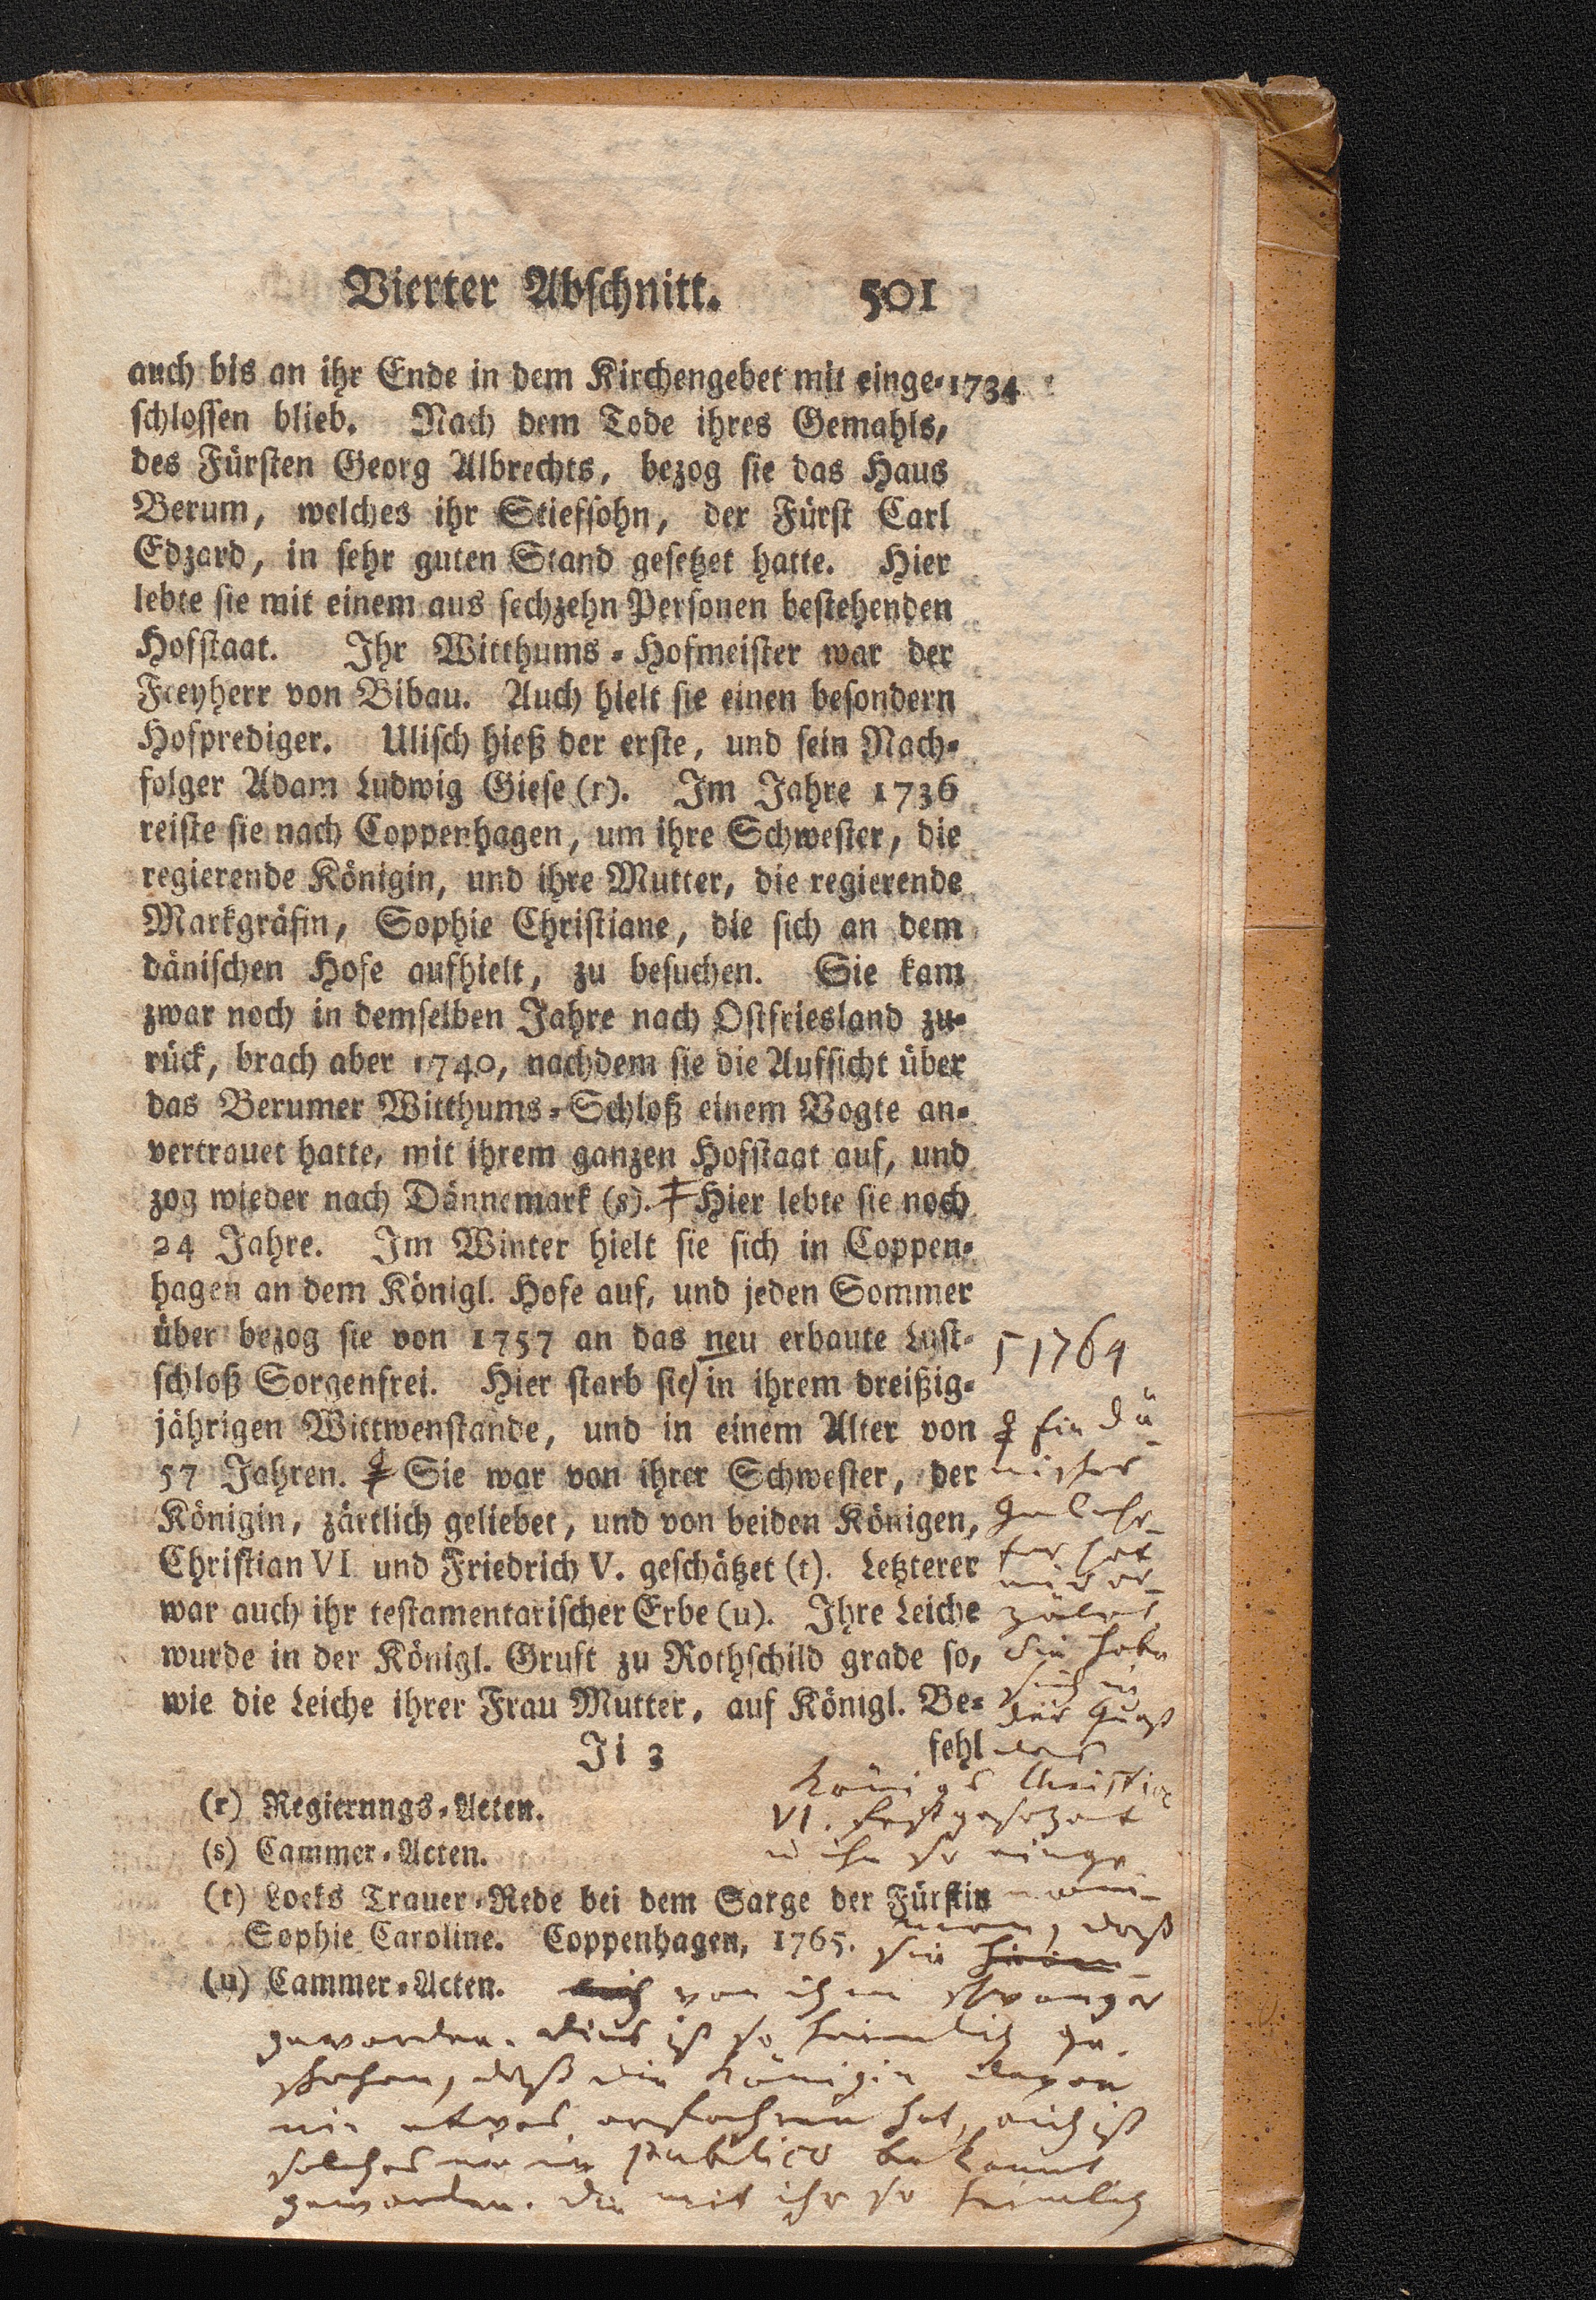 Vierter Abschnitt. 501
auch bis an ihr Ende in dem Kirchengebet mit einge- 1734
schlossen blieb. Nach dem Tode ihres Gemahls,
des Fürsten Georg Albrechts, bezog sie das Haus
Berum, welches ihr Stiefsohn, der Fürst Carl
Edzard, in sehr guten Stand gesetzet hatte. Hier
lebte sie mit einem aus sechzehn Personen bestehenden
Hofstaat. Ihr Witthums-Hofmeister war der
Freyherr von Bibau. Auch hielt sie einen besondern
Hofprediger. Ulisch hieß der erste, und sein Nach-
folger Adam Ludwig Giese (r). Im Jahre 1736
reiste sie nach Coppenhagen, um ihre Schwester, die
regierende Königin, und ihre Mutter, die regierende
Markgräfin, Sophie Christiane, die sich an dem
dänischen Hofe aufhielt, zu besuchen. Sie kam
zwar noch in demselben Jahre nach Ostfriesland zu-
rück, brach aber 1740, nachdem sie die Aufsicht über
das Berumer Witthums-Schloß einem Vogte an-
vertrauet hatte, mit ihrem ganzen Hofstaat auf, und
zog wieder nach Dännemark (s). Hier lebte sie noch
24 Jahre. Im Winter hielt sie sich in Coppen-
hagen an dem Königl. Hofe auf, und jeden Sommer
über bezog sie von 1757 an das neu erbaute Lust-
schloß Sorgenfrei. Hier starb sie in ihrem dreißig-
jährigen Wittwenstande, und in einem Alter von
57 Jahren. Sie war von ihrer Schwester, der
Königin, zärtlich geliebet, und von beiden Königen,
Christian VI und Friedrich V. geschätzet (t). Letzterer
war auch ihr testamentarischer Erbe (u). Ihre Leiche
wurde in der Königl. Gruft zu Rothschild grade so,
wie die Leiche ihrer Frau Mutter, auf Königl. Be-
Ii 3 fehl
(r) Regierungs-Acten.
(s) Cammer-Acten.
(t) Loeks Trauer-Rede bei dem Sarge der Fürstin
Sophie Caroline. Coppenhagen, 1765.
(u) Cammer-Acten.
1764
Ein Dä-
nischer
Gelehr-
ter hat
mir er-
zälet,
Sie habe
sich in
der Gunst
des
Königs Christian
VI. festgesetzet
u ihn so einge-
nom-
men, daß
sie
von ihm schwanger
geworden. Dies ist so heimlich ge-
schehen, daß die Königin davon
nie etwas erfahren hat, auch ist
solches nie in publico bekannt
geworden. Die mit ihr so heimlich